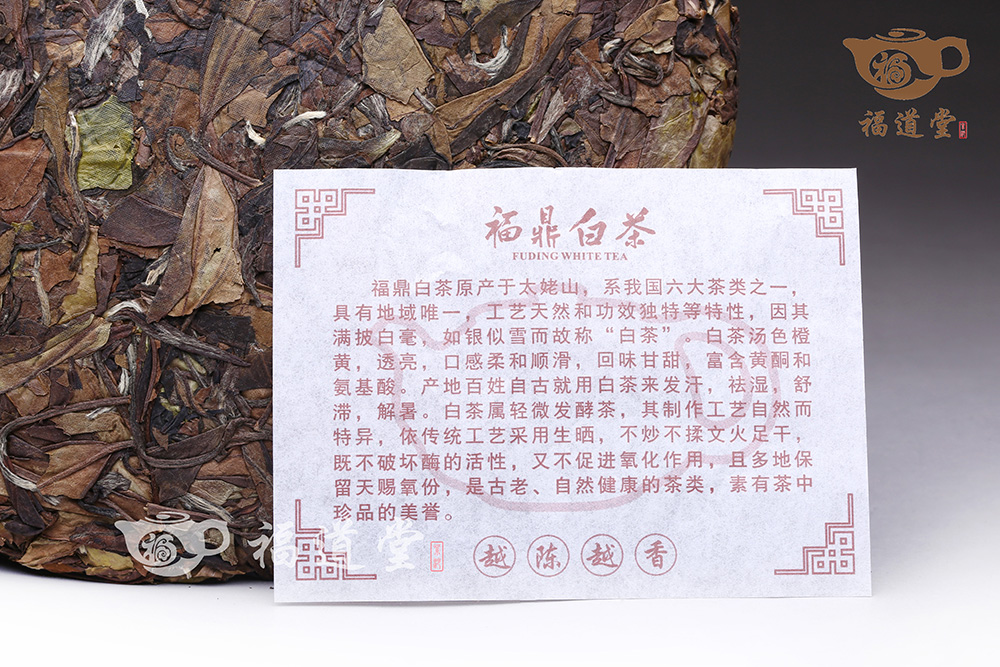 福道堂
福鼎白茶
FUDING WHITE TEA
福鼎白茶原产于太姥山，系我国六大茶类之一，
具有地域唯一，工艺天然和功效独特等特性，因其
满披白毫，如银似雪而故称“白茶”。白茶汤色橙
黄，透亮，口感柔和顺滑，回味甘甜，富含黄酮和
氨基酸。产地百姓自古就用白茶来发汗，祛湿，舒
滞，解暑。白茶属轻微发酵茶，其制作工艺自然而
特异，依传统工艺采用生晒，不炒不揉文火足干，
既不破坏酶的活性，又不促进氧化作用，且多地保
留天赐氧份，是古老、自然健康的茶类，素有茶中
珍品的美誉。
越陈越香
福道堂